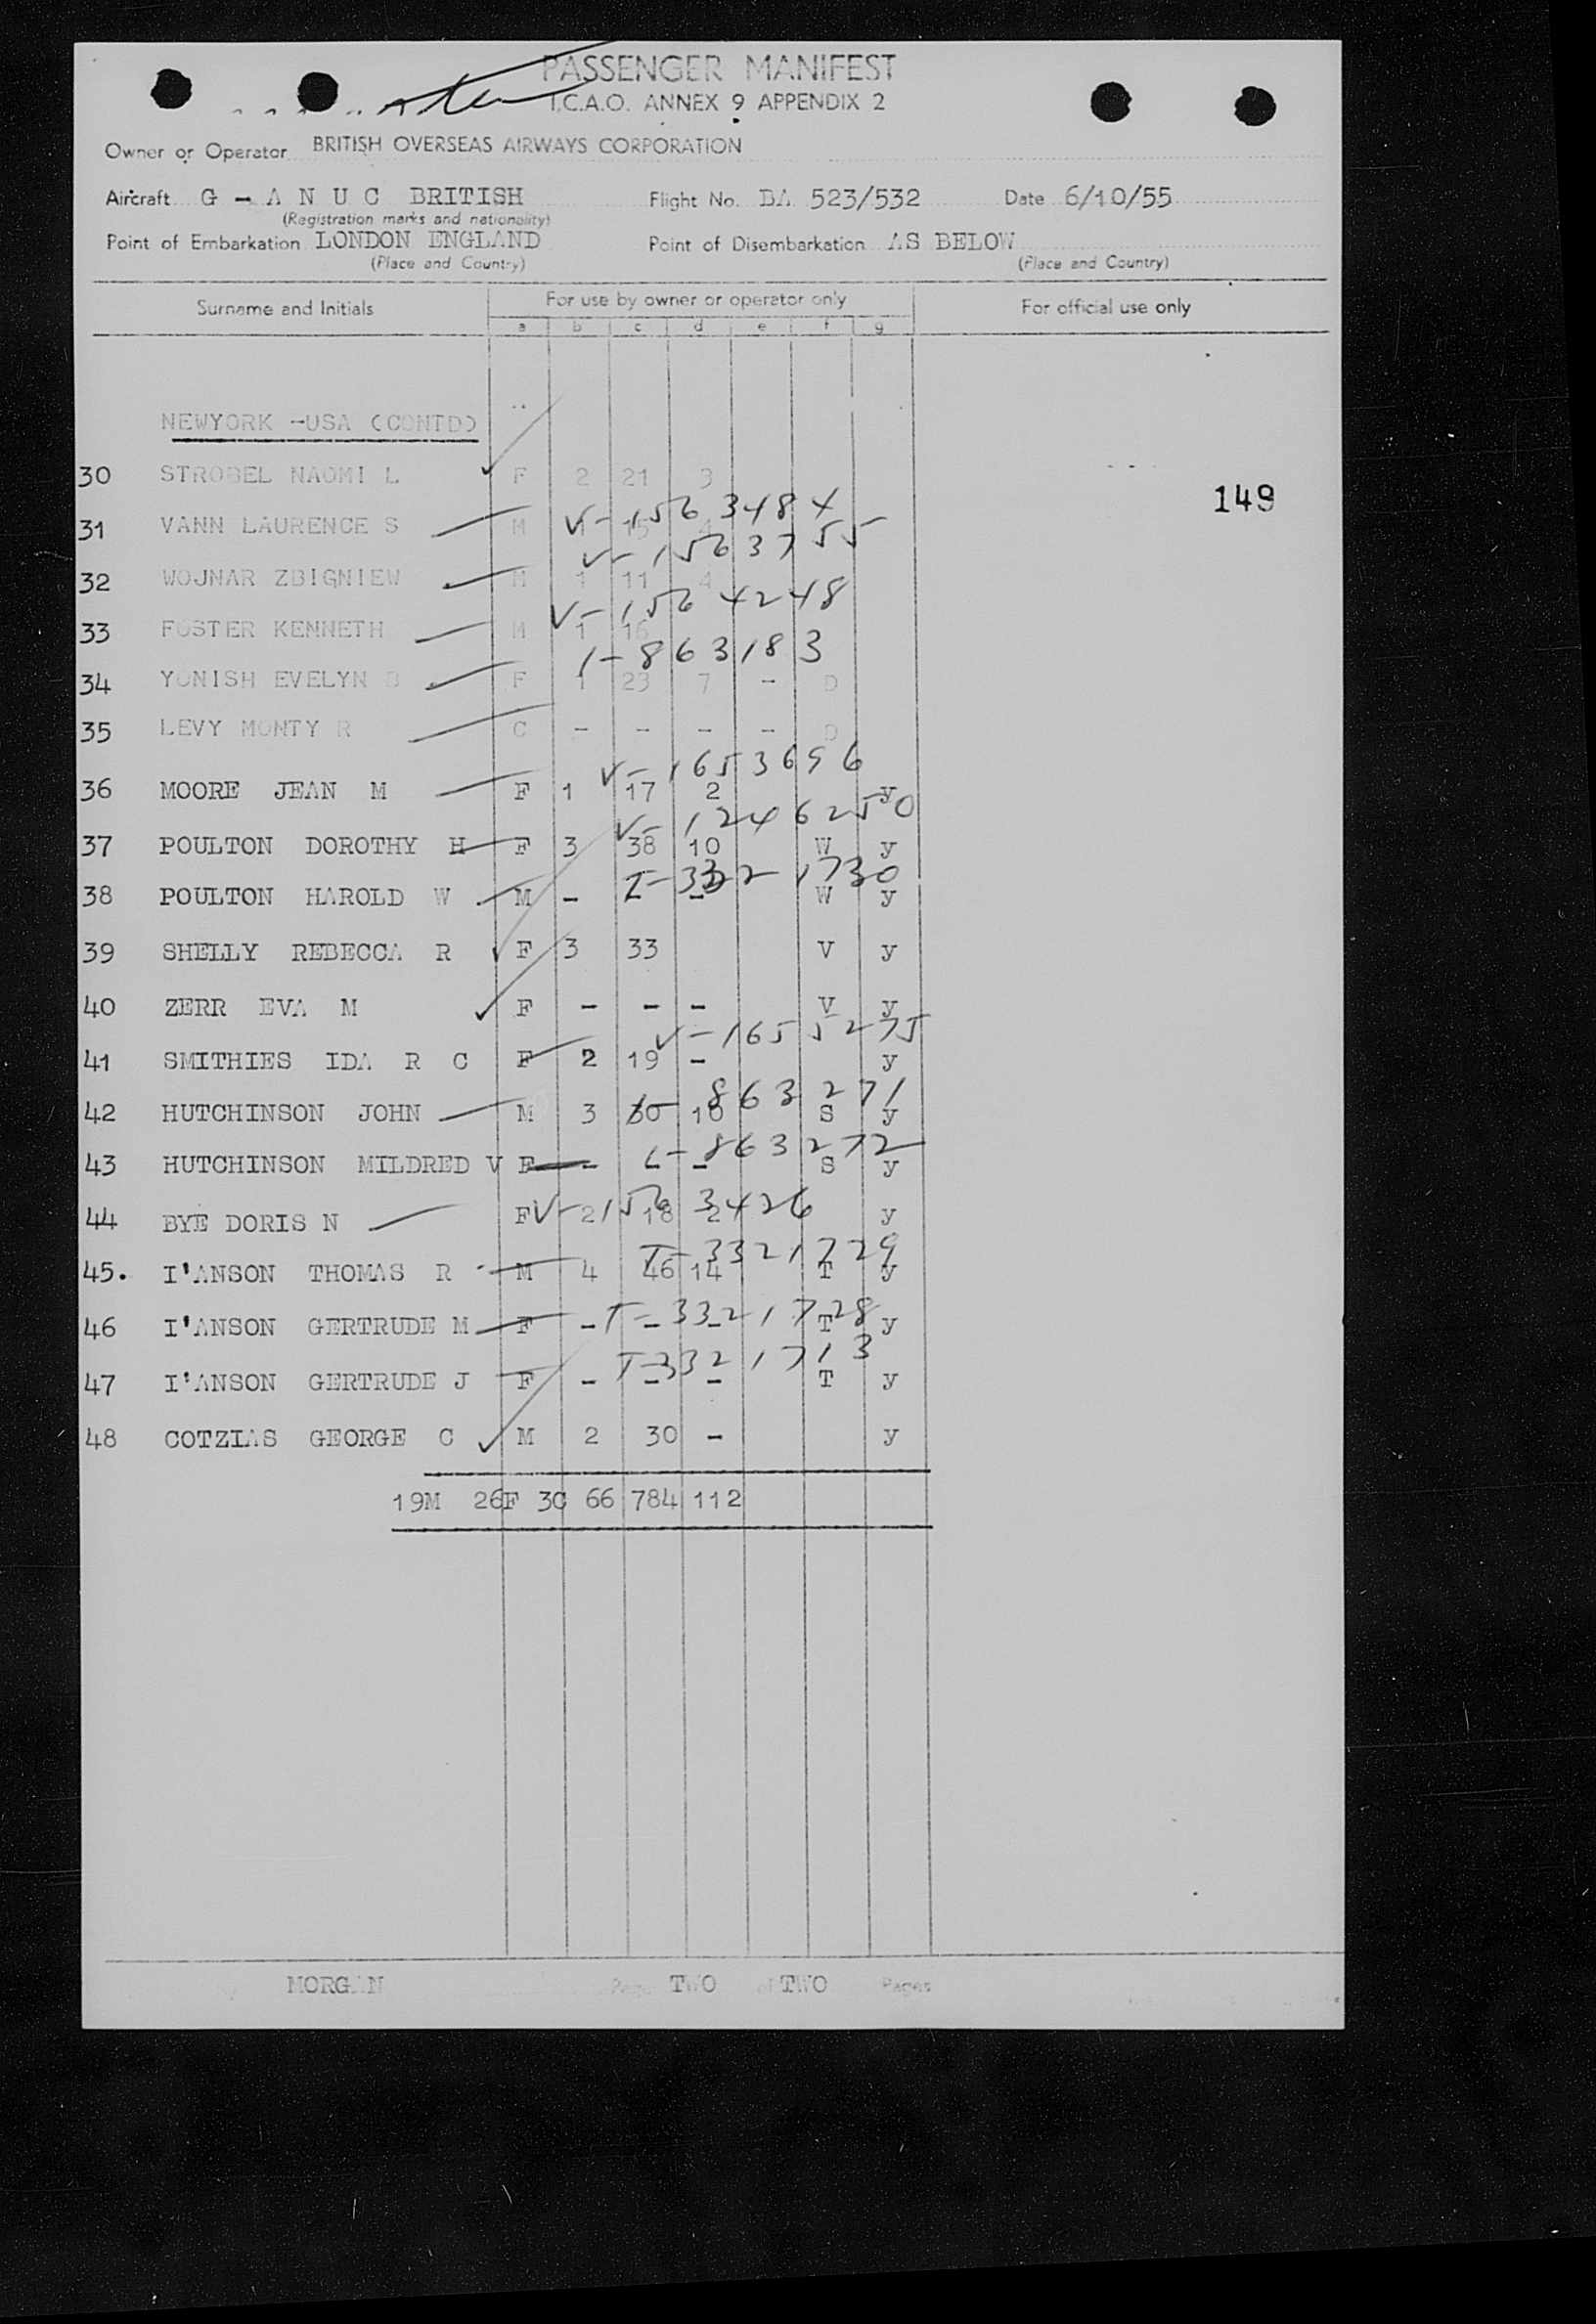 PASSENGER MANIFEST
I.C.A.O. ANNEX 9 APPENDIX 2
Owner or Operator BRITISH OVERSEAS AIRWAYS CORPORATION
Aircraft G - A N U C BRITISH Flight No. BA 523/532 Date 6/10/55
(Registration marks and nationality)
Point of Embarkation LONDON ENGLAND Point of Disembarkation AS BELOW
(Place and Country) (Place and Country)
Surname and Initials For use by owner or operator only For official use only
a b c d e f g
NEWYORK -USA (CONTD)
30 STROBEL NAOMI L F 2 21 3
149
V-1563484
31 VANN LAURENCE S M 1 15 4
V-1563755
32 WOJNAR ZBIGNIEW M 1 11 4
V-1564248
33 FOSTER KENNETH M 1 16
1-863183
34 YONISH EVELYN B F 1 23 7 - D
35 LEVY MONTY R C - - - - D
V-1653696
36 MOORE JEAN M F 1 17 2 y
V-1246250
37 POULTON DOROTHY H F 3 38 10 W y
T-3321730
38 POULTON HAROLD W M - - - W y
39 SHELLY REBECCA R F 3 33 V y
40 ZERR EVA M F - - - V y
V-1655275
41 SMITHIES IDA R C F 2 19 - y
1-863271
42 HUTCHINSON JOHN M 3 30 10 S y
1-863272
43 HUTCHINSON MILDRED V F - - - S y
V-1563426
44 BYE DORIS N F 2 18 2 y
T-3321729
45. I'ANSON THOMAS R M 4 46 14 T y
T-3321728
46 I'ANSON GERTRUDE M F - - - T y
T-3321713
47 I'ANSON GERTRUDE J F - - - T y
48 COTZIAS GEORGE C M 2 30 - y
19M 26F 3C 66 784 112
MORGAN Page TWO of TWO Pages